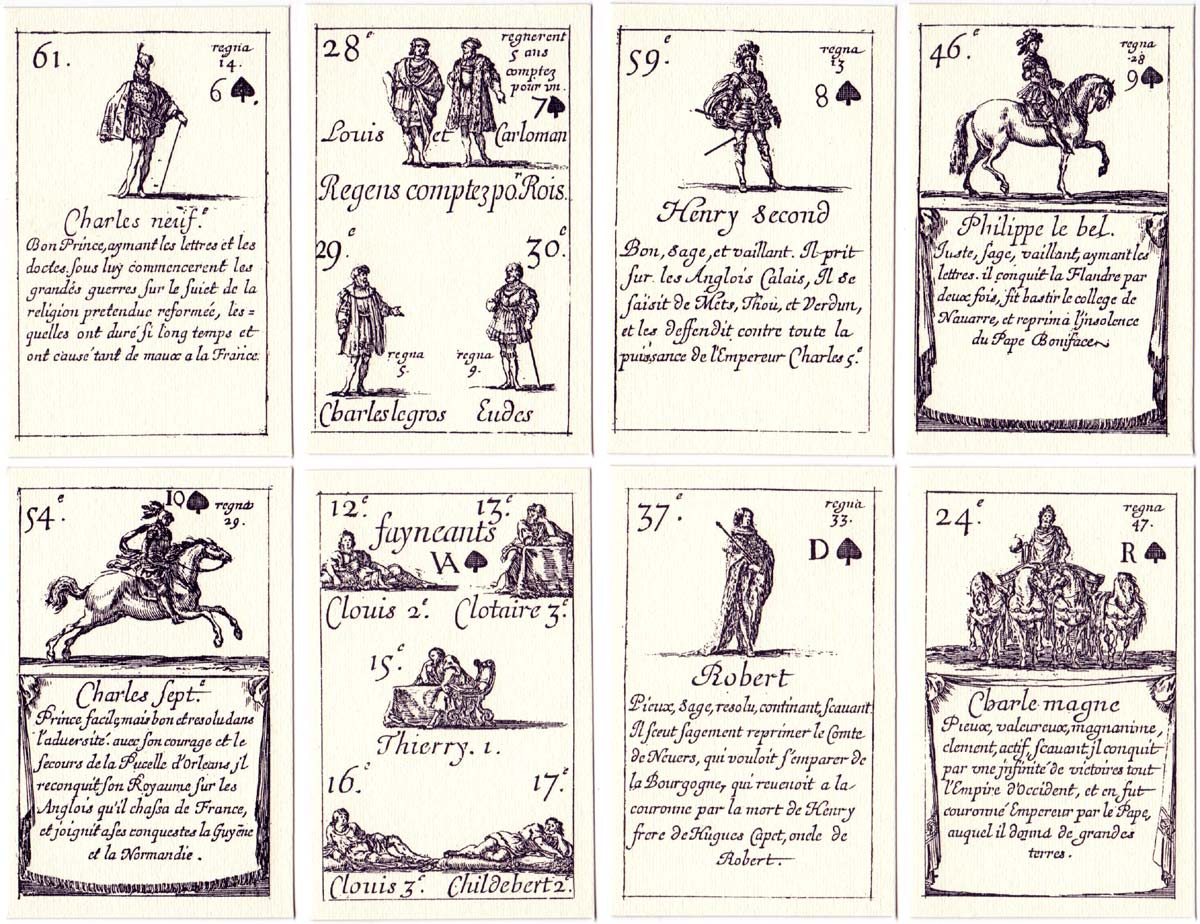 61.
regna
14.
6 ♠.
Charles neuf.e
Bon Prince, aymant les lettres et les
doctes. sous luy commencerent les
grandes guerres sur le suiet de la
religion pretendue reformeé, les=
quelles ont duré si long temps et
ont causé tant de maux a la France.
28e
regnerent
5 ans
comptez
pour vn.
7♠
Louis et Carloman
Regens comptez po.r Rois.
29.e
30.e
regna
5.
regna
9.
Charles le gros Eudes
59.e
regna
13
8 ♠
Henry second
Bon, sage, et vaillant. Il prit
sur les Anglois Calais, Il se
saisit de Mets, Thou, et Verdun,
et les deffendit contre toute la
puissance de l'Empereur Charles 5.e
46.e
regna
28
9♠
Philippe le bel.
Iuste, sage, vaillant, aymant les
lettres. il conquit la Flandre par
deux fois, fit bastir le college de
Nauarre, et reprima l'insolence
du Pape Boniface
54.e
10 ♠
regna
29.
Charles sept.e
Prince facile, mais bon et resolu dans
l'aduersité. auec son courage et le
secours de la Pucelle d'Orleans, jl
reconquit son Royaume sur les
Anglois qu'il chassa de France,
et joignit a ses conquestes la Guyëne
et la Normandie.
12.e
13.e
fayneants
VA ♠
Clouis 2.e Clotaire 3.e
15.e
Thierry. 1.
16.e
17.e
Clouis 3.e Childebert 2.e
37.e
regna
33.
D ♠
Robert
Pieux, sage, resolu, continant, scauant.
Il sceut sagement reprimer le Comte
de Neuers, qui vouloit s'emparer de
la Bourgogne, qui reuenoit a la
couronne par la mort de Henry
frere de Hugues Capet, oncle de
Robert.
24.e
regna
47.
R ♠
Charle magne
Pieux, valeureux, magnanime,
clement, actif, scauant, jl conquit
par vne jnfinité de victoires tout
l'Empire d'Occident, et en fut
couronné Empereur par le Pape,
auquel il donna de grandes
terres.